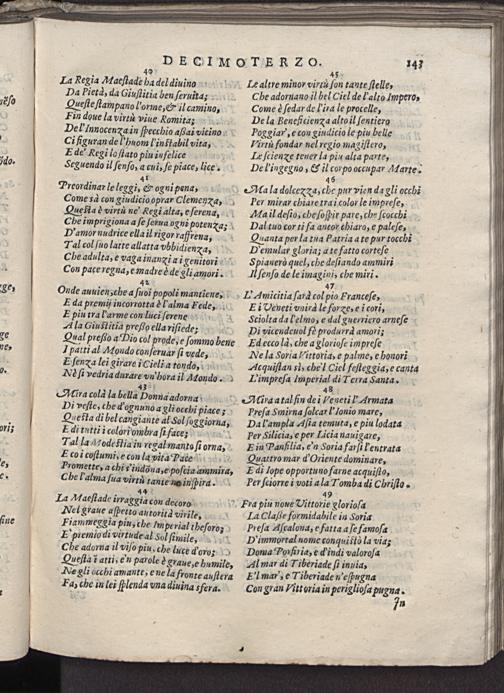 DECIMOTERZO. 143
40
La Regia Maestade ha del diuino
Da Pietà, da Giustitia ben seruita;
Queste stampano l'orme, & il camino,
Fin doue la virtù viue Romita;
De l'Innocenza in specchio assai vicino
Ci figuran de l'huom l'instabil vita,
E de' Regi lo stato piu infelice
Seguendo il senso, a cui, se piace, lice.
41
Preordinar le leggi, & ogni pena,
Come sà con giudicio oprar Clemenza,
Questa è virtù ne' Regi alta, e serena,
Che imprigiona a se senza ogni potenza;
D'amor nudrice ella il rigor raffrena,
Tal col suo latte allatta vbbidienza,
Che adulta, e vaga inanzi a i genitori
Con pace regna, e madre è de gli amori.
42
Onde auuien, che a suoi popoli mantiene,
E da premij incorrotta è l'alma Fede,
E piu tra l'arme con luci serene
A la Giustitia presso ella risiede;
Qual presso a Dio col prode, e sommo bene
I patti al Mondo conseruar si vede,
E senza lei girare i Cieli a tondo,
Nè si vedria durare vn'hora il Mondo.
43
Mira colà la bella Donna adorna
Di veste, che d'ognuno a gli occhi piace;
Questa di bel cangiante al Sol soggiorna,
E di tutti i colori ombra si face;
Tal la Modestia in regal manto si orna,
E co i costumi, e con la vita Pace
Promette, a chi s'indòna, e poscia ammira,
Che l'alma sua virtù tante ne inspira.
44
La Maestade irraggia con decoro
Nel graue aspetto autorità virile,
Fiammeggia piu, che Imperial thesoro;
E' premio di virtude al Sol simile,
Che adorna il viso piu, che luce d'oro;
Questa i atti, e'n parole è graue, e humile,
Ne gli occhi amante, e ne la fronte austera
Fa, che in lei splenda vna diuina sfera.
45
Le altre minor virtù son tante stelle,
Che adornano il bel Ciel de l'alto Impero,
Come è sedar de l'ira le procelle,
De la Beneficienza alto il sentiero
Poggiar', e con giudicio le piu belle
Virtù fondar nel regio magistero,
Le scienze tener la piu alta parte,
De l'ingegno, & il corpo occupar Marte.
46
Ma la dolcezza, che pur vien da gli occhi
Per mirar chiare trai color le imprese,
Ma il desio, che sospit pare, che scocchi
Dal tuo cor ti fa autor chiaro, e palese,
Quanta per la tua Patria a te pur tocchi
D'emular gloria; a te fatto cortese
Spianerò quel, che desiando ammiri
Il senso de le imagini, che miri.
47
L'Amicitia sarà col pio Francese,
E i Veneti vnirà le forze, e i cori,
Sciolx da l'elmo, e dal guerriero arnese
Di vicendeuol fè produrrà amori;
Ed ecco là, che a gloriose imprese
Ne la Soria Vittoria, e palme, e honori
Acquistan sì, che'l Ciel festeggia, e canta
L'impresa Imperial di Terra Santa.
48
Mira a tal fin de i Veneti l'Armata
Presa Smirna solcar l'Ionio mare,
Da l'ampla Asia temuta, e piu lodata
Per Silicia, e per Licia nauigare,
E in Panfilia, e'n Soria farsi l'entrata
Quattro mar d'Oriente dominare,
E di Iope opportuno farne acquisto,
Per sciorre i voti a la Tomba di Christo.
49
Fra piu noue Vittorie gloriosa
La Classe formidabile in Soria
Presa Ascalona, e fatta a se famosa
D'immortal nome conquistò la via;
Doma Porfiria, e d'indi valorosa
Al mar di Tiberiade si inuia,
E'l mar', e Tiberiade n'espugna
Con gran Vittoria in perigliosa pugna.
In